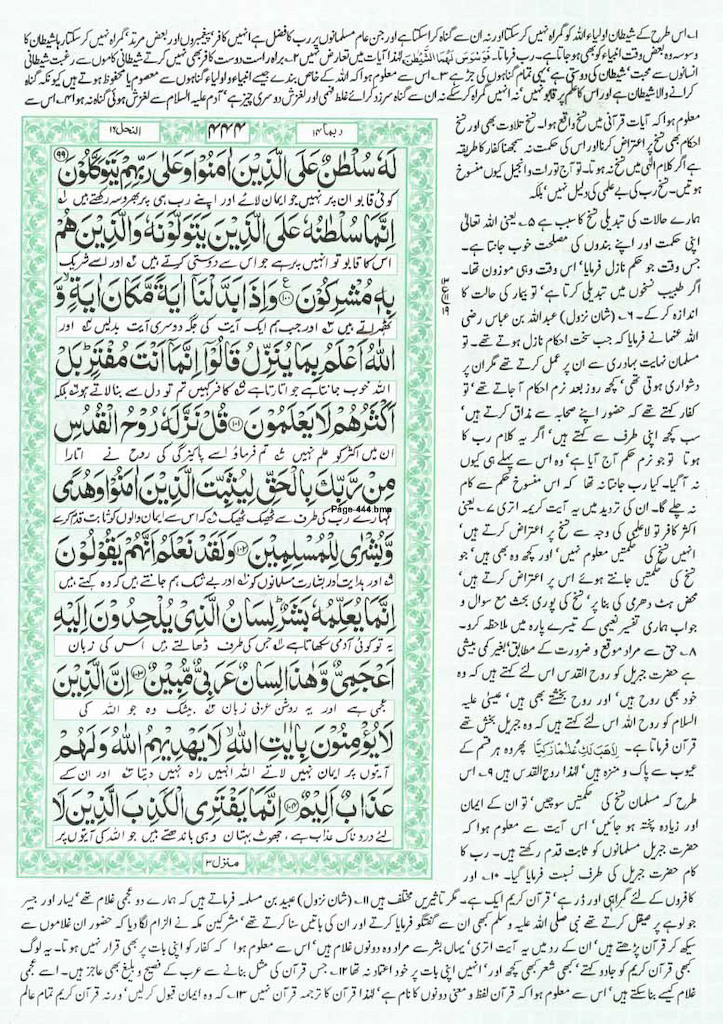 ۱۔ اس طرح کے شیطان اولیاء اللہ کو گمراہ نہیں کر سکتا اور نہ ان سے گناہ کرا سکتا ہے اور جن عام مسلمانوں پر رب کا فضل ہے انہیں کافر، پیغمبروں اور بعض مرتد گمراہ نہیں کر سکتا رہا شیطان کا
وسوسہ وہ بعض وقت انبیاء کو بھی ہو جاتا ہے۔ رب فرماتا۔ فَوَسْوَسَ لَهُمَا الشَّيْطٰنُ لہٰذا آیات میں تعارض نہیں ۲۔ براہ راست دوست کافر بھی نہیں کرتے شیطانی کاموں سے رغبت شیطانی
انسانوں سے محبت، شیطان کی دوستی ہے، یہی تمام گناہوں کی جڑ ہے ۳۔ اس سے معلوم ہوا کہ اللہ کے خاص بندے جیسے انبیاء و اولیاء گناہوں سے معصوم یا محفوظ ہوتے ہیں کیونکہ گناہ
کرانے والا شیطان ہے اور اس کا ہم پر قابو نہیں، نہ انہیں گمراہ کر سکے نہ ان سے گناہ سرزد کرائے غلط فہمی اور لغزش دوسری چیز ہے، آدم علیہ السلام سے لغزش ہوئی گناہ نہ ہوا ۴۔ اس سے
معلوم ہوا کہ آیات قرآنی میں نسخ واقع ہوا۔ نسخ تلاوت بھی اور نسخ
احکام بھی نسخ پر اعتراض کرنا اور اس کی حکمت نہ سمجھنا کفار کا طریقہ
ہے اگر کلام الٰہی میں نسخ نہ ہوتا۔ تو آج تورات و انجیل کیوں منسوخ
ہوتیں۔ نسخ رب کی بے علمی کی دلیل نہیں، بلکہ
ہمارے حالات کی تبدیلی نسخ کا سبب ہے ۵۔ یعنی اللہ تعالیٰ
اپنی حکمت اور اپنے بندوں کی مصلحت خوب جانتا ہے۔
جس وقت جو حکم نازل فرمایا، اس وقت وہی موزون تھا۔
اگر طبیب نسخوں میں تبدیلی کرتا ہے، تو بیمار کی حالت کا
اندازہ کر کے۔ ۶۔ (شان نزول) عبداللہ بن عباس رضی
اللہ عنہما نے فرمایا کہ جب سخت احکام نازل ہوتے تھے۔ تو
مسلمان نہایت بہادری سے ان پر عمل کرتے تھے مگر ان پر
دشواری ہوتی تھی، کچھ روز بعد نرم احکام آ جاتے تھے، تو
کفار کہتے تھے کہ حضور اپنے صحابہ سے مذاق کرتے ہیں،
سب کچھ اپنی طرف سے کہتے ہیں، اگر یہ کلام رب کا
ہوتا تو جو نرم حکم آج آیا ہے، وہ اس سے پہلے ہی کیوں
نہ آ گیا۔ کیا رب جانتا نہ تھا کہ اس منسوخ حکم سے کام
نہ چلے گا۔ ان کی تردید میں یہ آیت کریمہ اتری ۷۔ یعنی
اکثر کافر تو لاعلمی کی وجہ سے نسخ پر اعتراض کرتے ہیں،
انہیں نسخ کی حکمتیں معلوم نہیں، اور کچھ وہ بھی ہیں، جو
نسخ کی حکمتیں جانتے ہوئے اس پر اعتراض کرتے ہیں،
محض ہٹ دھرمی کی بنا پر، نسخ کی پوری بحث مع سوال و
جواب ہماری تفسیر نعیمی کے تیسرے پارہ میں ملاحظہ کرو۔
۸۔ حق سے مراد موقع و ضرورت کے مطابق بغیر کمی بیشی
ہے حضرت جبریل کو روح القدس اس لئے کہتے ہیں کہ وہ
خود بھی روح ہیں، اور روح بخشتے بھی ہیں، عیسیٰ علیہ
السلام کو روح اللہ اس لئے کہتے ہیں کہ وہ جبریل بخش تھے
قرآن فرماتا ہے۔ لِاَهَبَ لَكِ غُلٰمًا زَكِيًّا پھر وہ ہر قسم کے
عیوب سے پاک و منزہ ہیں، لہٰذا روح القدس ہیں ۹۔ اس
طرح کہ مسلمان نسخ کی حکمتیں سوچیں، تو ان کے ایمان
اور زیادہ پختہ ہو جائیں، اس آیت سے معلوم ہوا کہ
حضرت جبریل مسلمانوں کو ثابت قدم رکھتے ہیں۔ رب کا کام
حضرت جبریل کی طرف نسبت فرمایا گیا۔ ۱۰۔ اور
ربما ۱۴
۴۴۴
النحل ۱۶
لَهٗ سُلْطٰنٌ عَلَى الَّذِيْنَ اٰمَنُوْا وَعَلٰى رَبِّهِمْ يَتَوَكَّلُوْنَ ۹۹
کوئی قابو ان پر نہیں جو ایمان لائے اور اپنے رب ہی پر بھروسہ رکھتے ہیں
اِنَّمَا سُلْطٰنُهٗ عَلَى الَّذِيْنَ يَتَوَلَّوْنَهٗ وَالَّذِيْنَ هُمْ
اس کا قابو تو انہیں پر ہے جو اس سے دوستی کرتے ہیں اور اسے شریک
بِهٖ مُشْرِكُوْنَ ۱۰۰ ع وَاِذَا بَدَّلْنَاۤ اٰيَةً مَّكَانَ اٰيَةٍ وَّ
ٹھہراتے ہیں اور جب ہم ایک آیت کی جگہ دوسری آیت بدلیں اور
اللّٰهُ اَعْلَمُ بِمَا يُنَزِّلُ قَالُوْۤا اِنَّمَاۤ اَنْتَ مُفْتَرٍ بَلْ
اللہ خوب جانتا ہے جو اتارتا ہے کافر کہیں تم تو دل سے بنا لاتے ہو بلکہ
اَكْثَرُهُمْ لَا يَعْلَمُوْنَ ۱۰۱ قُلْ نَزَّلَهٗ رُوْحُ الْقُدُسِ
ان میں اکثر کو علم نہیں تم فرماؤ اسے پاکیزگی کی روح نے اتارا
مِنْ رَّبِّكَ بِالْحَقِّ لِيُثَبِّتَ الَّذِيْنَ اٰمَنُوْا وَهُدًى
Page-444.bmp
تمہارے رب کی طرف سے ٹھیک ٹھیک کہ اس سے ایمان والوں کو ثابت قدم کرے
وَّبُشْرٰى لِلْمُسْلِمِيْنَ ۱۰۲ وَلَقَدْ نَعْلَمُ اَنَّهُمْ يَقُوْلُوْنَ
اور ہدایت اور بشارت مسلمانوں کو اور بے شک ہم جانتے ہیں کہ وہ کہتے ہیں
اِنَّمَا يُعَلِّمُهٗ بَشَرٌ لِسَانُ الَّذِيْ يُلْحِدُوْنَ اِلَيْهِ
یہ تو کوئی آدمی سکھاتا ہے جس کی طرف ڈھالتے ہیں اس کی زبان
اَعْجَمِيٌّ وَّهٰذَا لِسَانٌ عَرَبِيٌّ مُّبِيْنٌ ۱۰۳ اِنَّ الَّذِيْنَ
عجمی ہے اور یہ روشن عربی زبان بیشک وہ جو اللہ کی
لَا يُؤْمِنُوْنَ بِاٰيٰتِ اللّٰهِ لَا يَهْدِيْهِمُ اللّٰهُ وَلَهُمْ
آیتوں پر ایمان نہیں لاتے اللہ انہیں راہ نہیں دیتا اور ان کے
عَذَابٌ اَلِيْمٌ ۱۰۴ اِنَّمَا يَفْتَرِي الْكَذِبَ الَّذِيْنَ لَا
لئے دردناک عذاب ہے، جھوٹ بہتان وہی باندھتے ہیں جو اللہ کی آیتوں پر
منزل ۳
کافروں کے لئے گمراہی اور ڈر ہے، قرآن کریم ایک ہے۔ مگر تاثیریں مختلف ہیں ۱۱۔ (شان نزول) عبید بن مسلمہ فرماتے ہیں کہ ہمارے دو عجمی غلام تھے، یسار اور جبیر
جو لوہے پر صیقل کرتے تھے نبی صلی اللہ علیہ وسلم کبھی ان سے گفتگو فرمایا کرتے اور ان کی باتیں سنا کرتے تھے، مشرکین مکہ نے الزام لگا دیا کہ حضور ان غلاموں سے
سیکھ کر قرآن پڑھتے ہیں، ان کے رد میں یہ آیت اتری، یہاں بشر سے مراد وہ دونوں غلام ہیں، اس سے معلوم ہوا کہ کفار کو اپنی بات پر بھی قرار نہیں ہوتا۔ یہ لوگ
کبھی قرآن کریم کو جادو کہتے، کبھی شعر، کبھی کچھ اور، انہیں اپنی بات پر خود اعتماد نہ تھا ۱۲۔ جس قرآن کی مثل بنانے سے عرب کے فصیح و بلیغ بھی عاجز ہیں۔ اسے عجمی
غلام کیسے بنا سکتے ہیں، اس سے معلوم ہوا کہ قرآن لفظ و معنی دونوں کا نام ہے، لہٰذا قرآن کا ترجمہ قرآن نہیں ۱۳۔ کہ وہ ایمان قبول کر لیں، ورنہ قرآن کریم تمام عالم